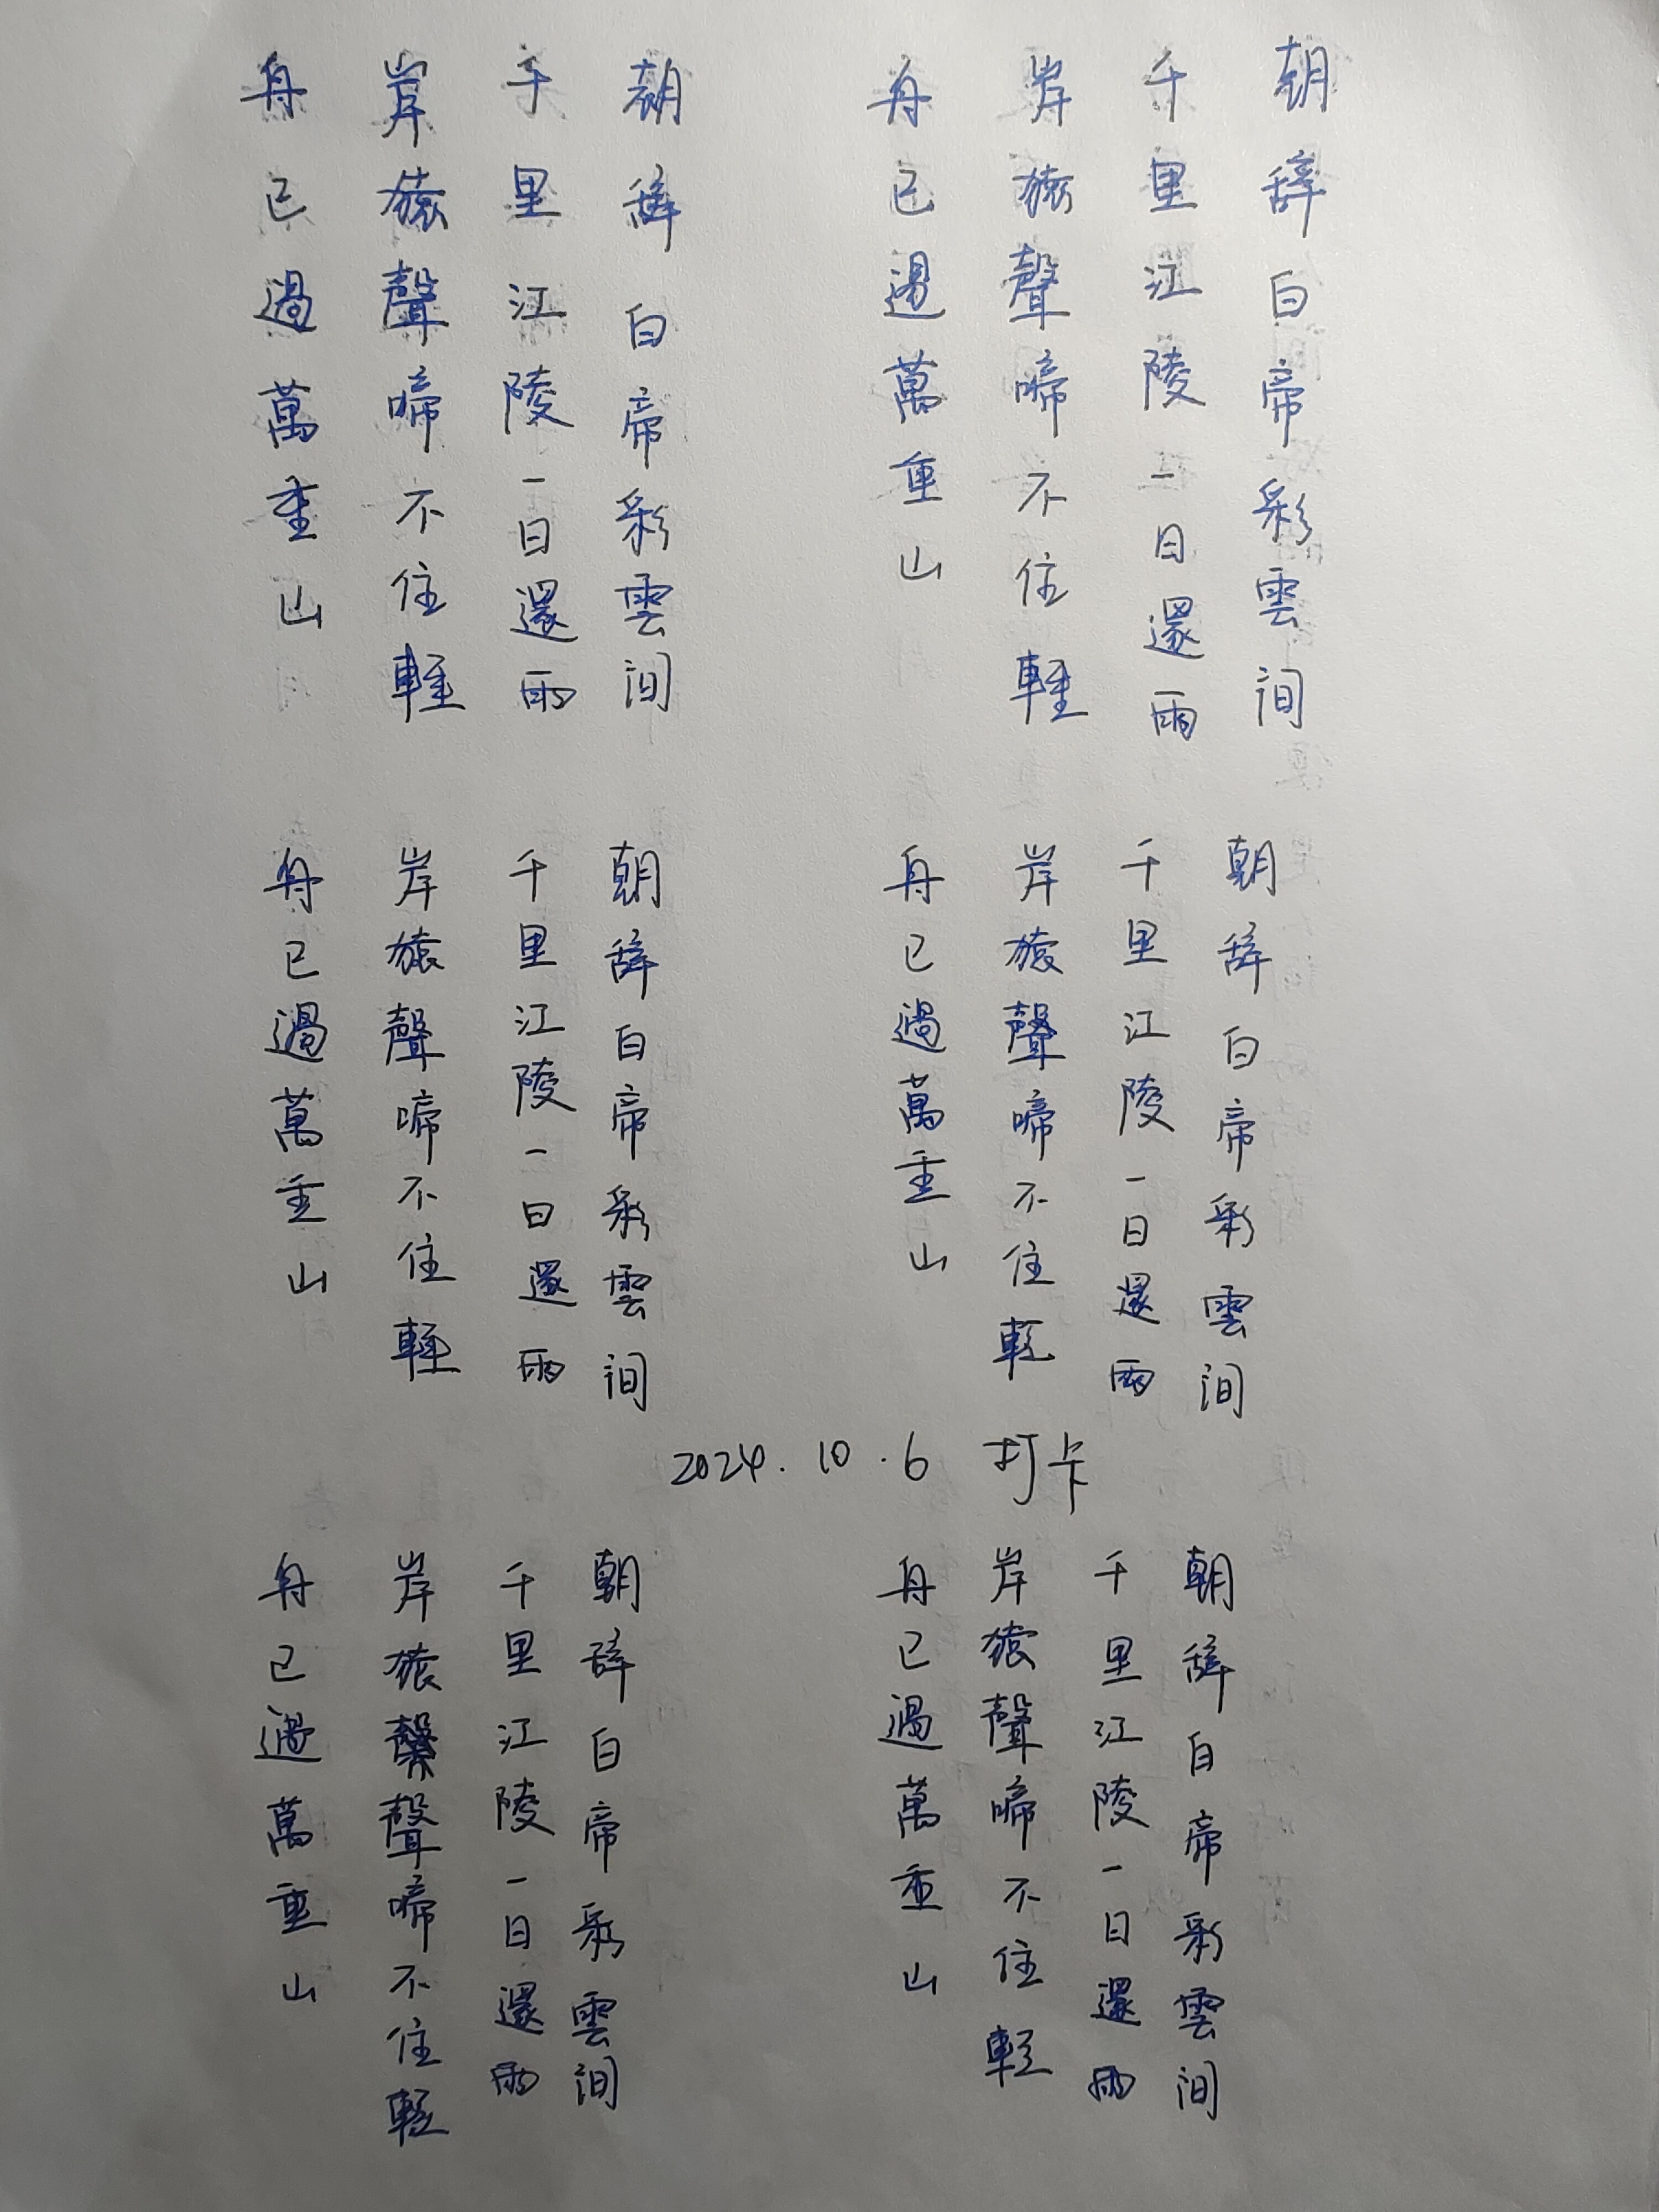 朝辭白帝彩雲间
千里江陵一日還兩
岸猿聲啼不住輕
舟已過萬重山
朝辭白帝彩雲间
千里江陵一日還兩
岸猿聲啼不住輕
舟已過萬重山
朝辭白帝彩雲间
千里江陵一日還兩
岸猿聲啼不住輕
舟已過萬重山
朝辭白帝彩雲间
千里江陵一日還兩
岸猿聲啼不住輕
舟已過萬重山
2024.10.6 打卡
朝辭白帝彩雲间
千里江陵一日還兩
岸猿聲啼不住輕
舟已過萬重山
朝辭白帝彩雲间
千里江陵一日還兩
岸猿聲啼不住輕
舟已過萬重山